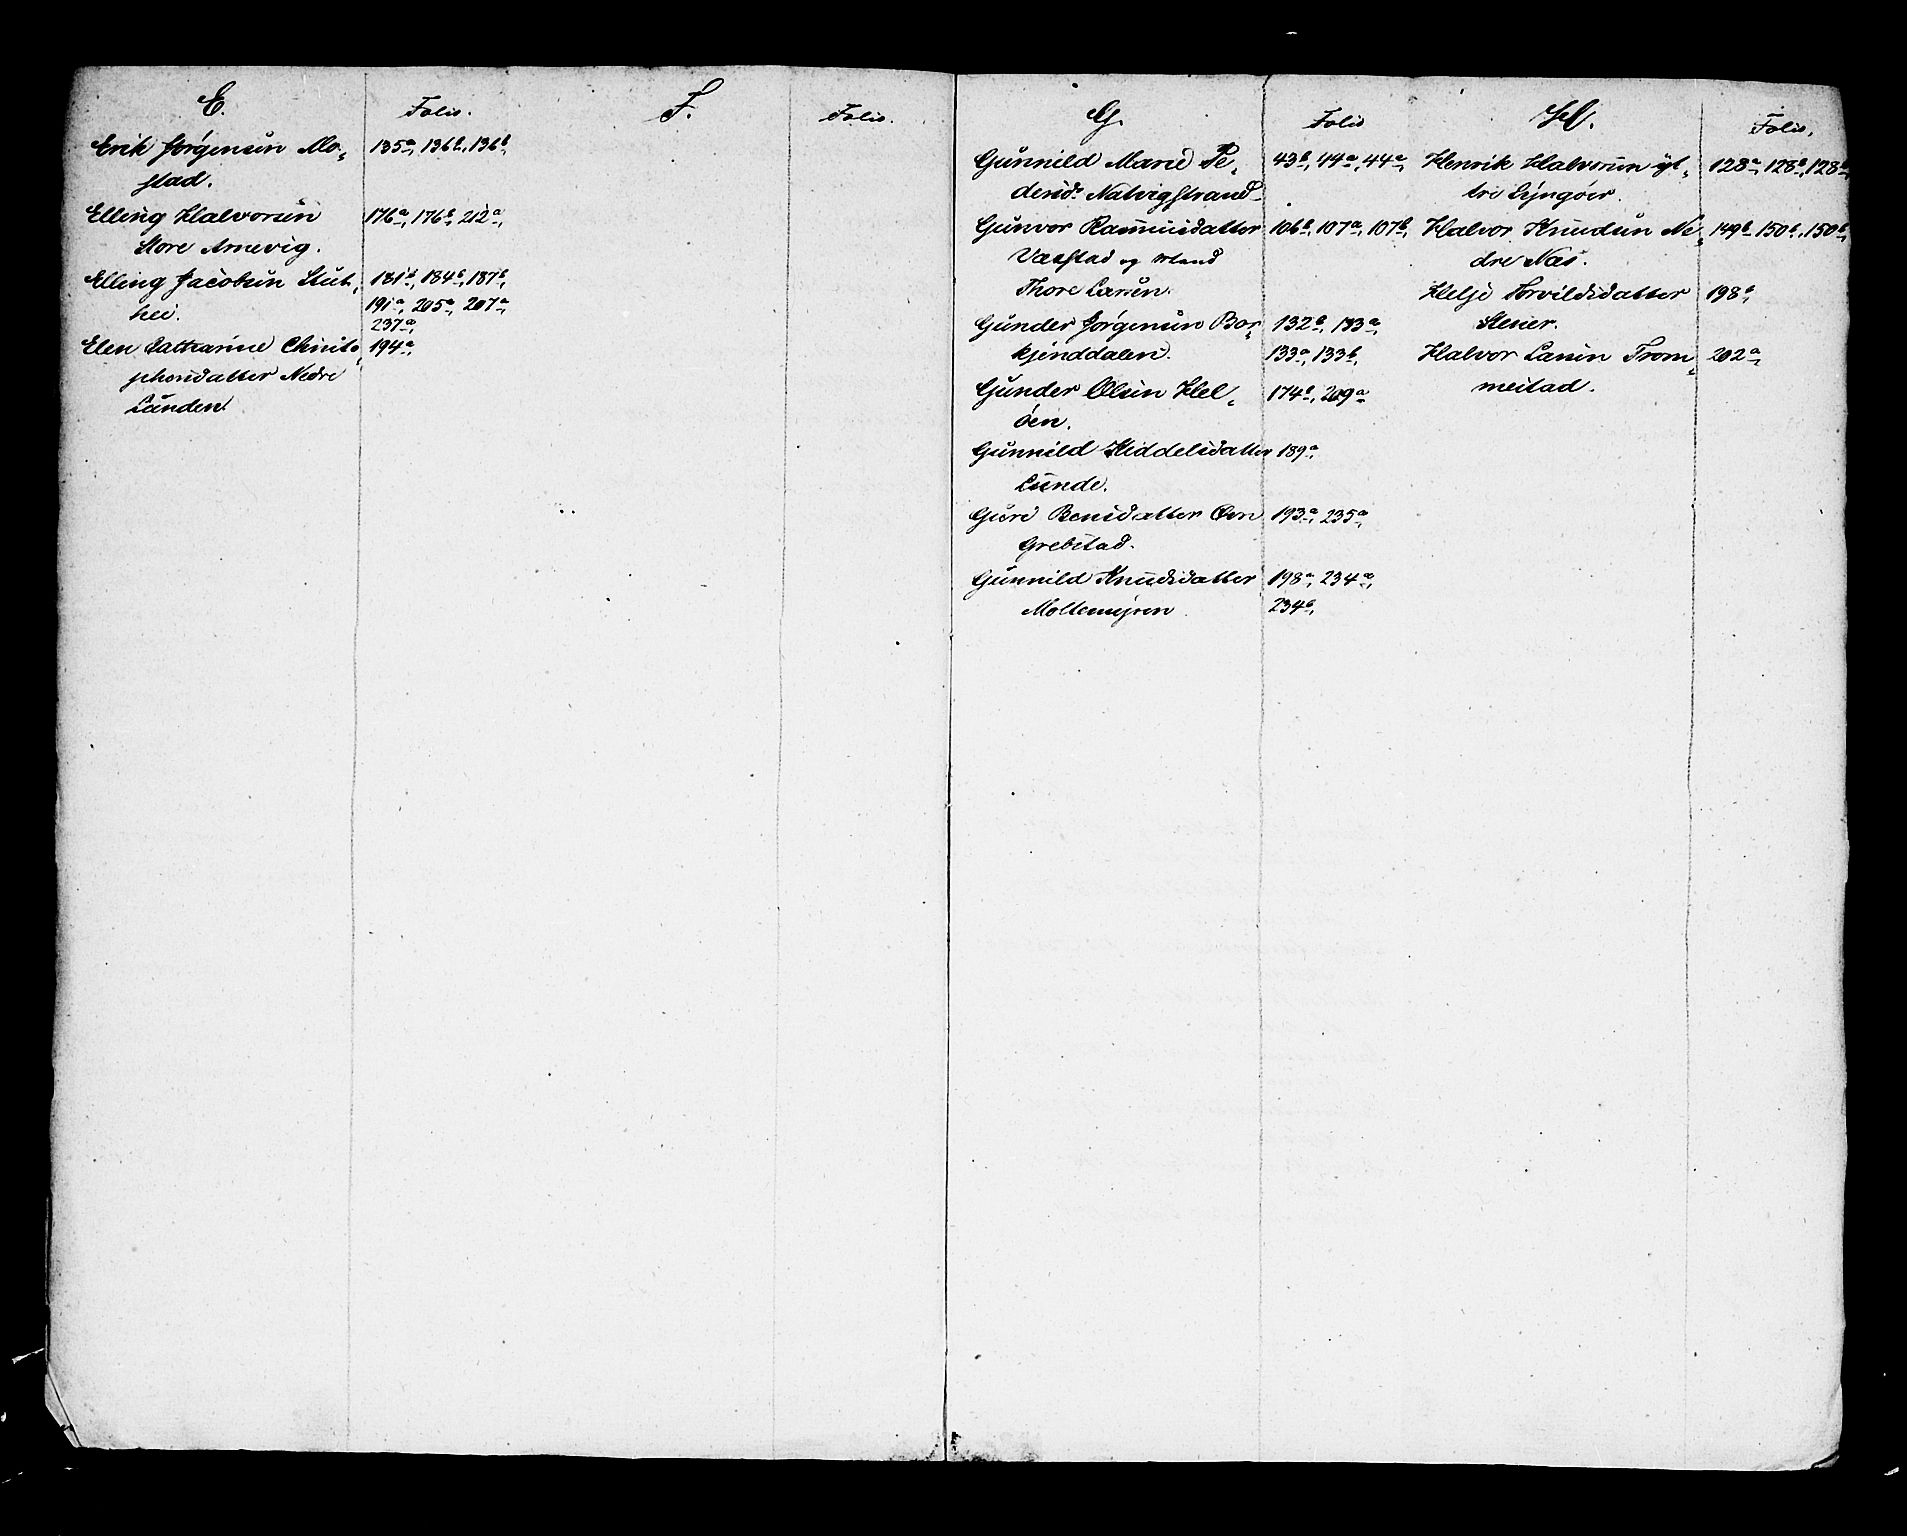 E.
Folio.
Erik Jørgensen Mo-
stad.
135a, 136b, 136b,
Elling Halvorsen
Store Arnevig.
176a, 176b, 212a,
Elling Jacobsen Stut-
hei.
181b, 184b, 187b,
191a, 205a, 207a,
237a,
Elen Cathrine Christo-
phersdatter Nedre
Lunden.
194a,
F.
Folio.
G.
Folio
Gunnild Marie Pe-
dersd. Natvigstrand
43b, 44a, 44a,
Gunvor Rasmusdatter
Vasstad og Mand
Thore Larsen.
106b, 107a, 107b,
Gunder Jørgensen Bor-
kjenddalen.
132b, 133a,
133a, 133b,
Gunder Olsen Hel-
öen.
174b, 209a
Gunnild Kiddelsdatter
Lunde.
189a,
Guri Bensdatter
Grebstad.
193a, 235a,
Gunnild Knudsdatter
Moltemyren
198a, 234a,
234b,
H.
Folio.
Henrik Halvorsen yt-
tre Lyngöer.
128a, 128b, 128b,
Halvor Knudsen Ne-
dre Næs.
149b, 150b, 150b,
Helje Torvildsdatter
198a,
Halvor Larsen Trom-
mestad.
202a